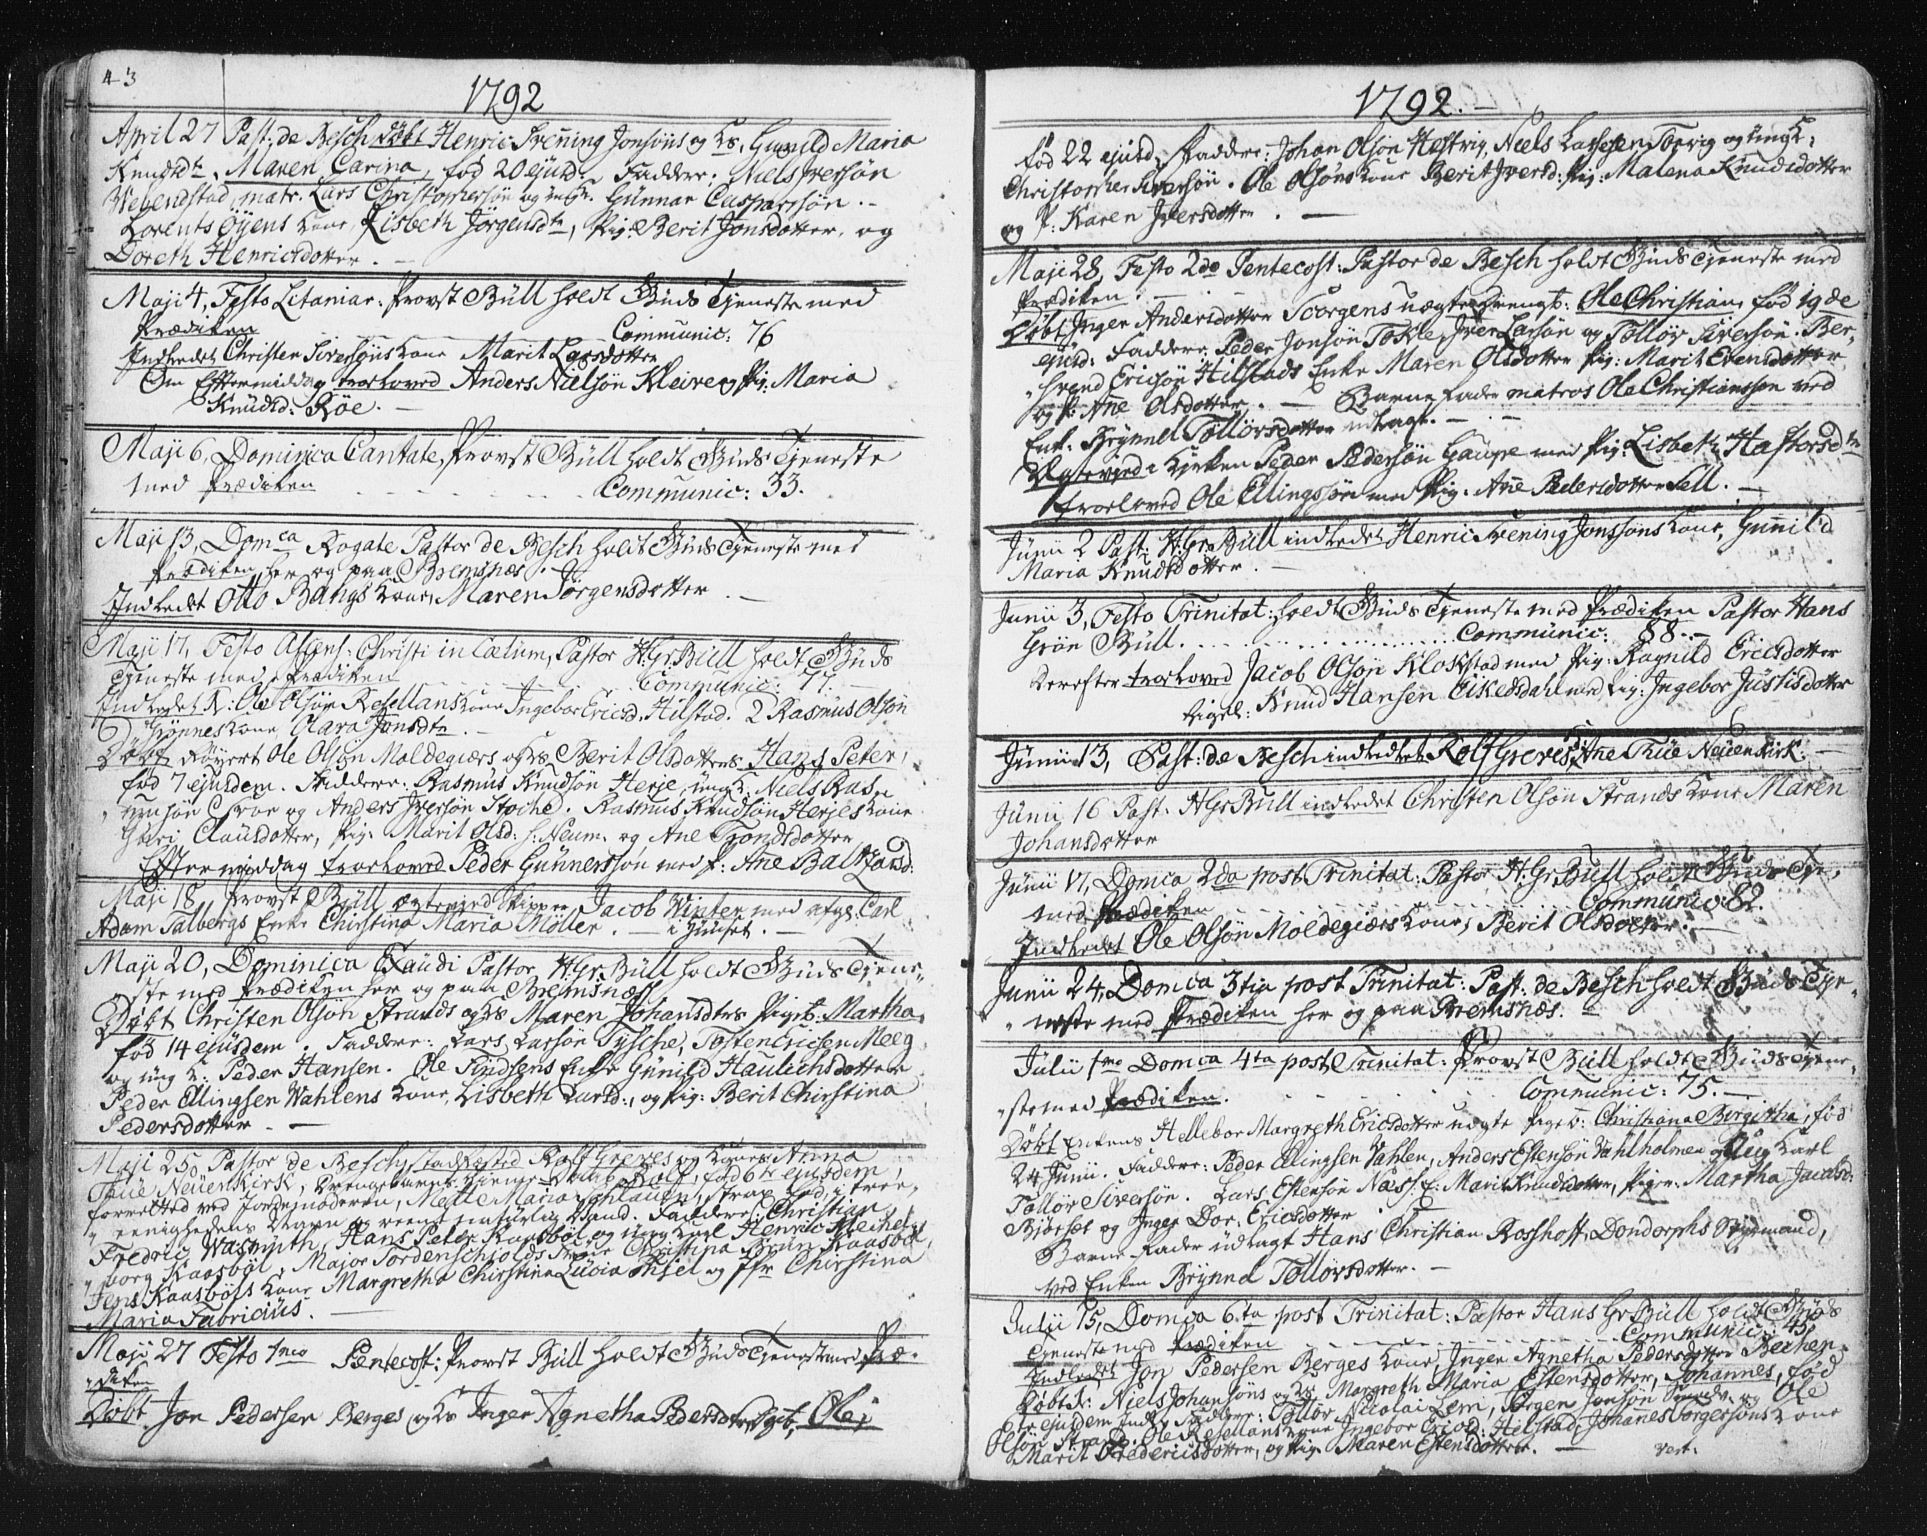 43
1792
April 27 Past: de Besch døbt Henric Srening Jonsöns og Hs. Gunild Maria
Knudsdt. Maren Carina, fød 20 ejusd. Faddere: Niels Iversön
Webendstad, matr. Lars Christophersön og ungk. Gunnar Caspersön.
Lorents Öyens Kone Lisbeth Jörgensdtr, Pig: Berit Jonsdotter, og
Doreth Henricsdotter.
Maji 4, Festo Litaniar: Provst Büll holdt Guds Tjeneste med
Prædiken Communic: 76
Indledet Christen Siversöns Kone Marit Larsdotter
Om Eftermiddag troloved Anders Nielsön Kleive og Pig: Maria
Knudsd: Röe.
Maji 6, Dominica Cantate, Provst Büll holdt Guds Tjeneste
med Prædiken Communic: 33.
Maji 13, Domca Rogate Pastor de Besch holdt Guds Tjeneste med
Prædiken her og paa Bremsnæs.
Indledet Otto Bangs Kone, Maren Jörgensdotter
Maji 17, Festo Ascens: Christi in Cælum, Pastor H: Gr: Büll holdt Guds
Tjeneste med Prædiken Communic: 77.
Indledet K: Ole Olsön Rosellans Kone Ingebor Ericsd. Hilstad. 2 Rasmus Olsön
Grönnes Kone, Olava Jonsdtr.
Döbt Röyert Ole Olsön Moldegiærs og Hs Berit Olsdotters Hans Peter,
fød 7 ejusdem. Faddere: Rasmus Knudsön Herje, ungk: Niels Ras-
musön og Anders Iversön Stoche. Rasmus Knudsön Herjes Kone
Clausdotter, Pig: Marit Olsd: h: Neum. og Ane Trondsdotter
Eftermiddag troloved Peder Gunnersson med P: Ane Baltzarsd:
Maji 18 Provst Büll ægtevied Skipper Jacob Winter med afg: Carl
Adam Talbergs Enke Christina Maria Möller. i Huuset.
Maji 20, Dominica Exaudi Pastor H: Gr: Büll holdt Guds Tjene-
ste med Prædiken her og paa Bremsnæss
Döbt Christen Olsön Strands og Hs Maren Johansdtrs Pigeb: Martha,
fød 14 ejusdem. Faddere: Lars Larsön Tysche, Tosten Ericsen Meeg
og ung k. Peder Hansen. Ole Findsens Enke Gunild Haulichsdotter
Peder Ellingsen Wahlens Kone, Lisbeth Larsd:, og Pig: Berit Christina
Pedersdotter.
Maji 25, Pastor de Besch stadfæsted Rolf Greves og Kones Anna
True Neuenkirk, Drengebarns hjemme Daab Rolf, fød 6te ejusdem,
forretted ved Jordemoderen, Mette Maria Schlauen, strax fød, i Tree-
eenighedens Navn og reent naturlig Vand. Faddere: Christian
Fredric Wasmuth, Hans Peter Kaasböl og ung Karl Henric Meinel
borg Kaasböl, Major Tordenschjolds Frue Christina Brun Kaasböl,
Jens Kaasböls Kone Margretha Christina Lucia Thiel og Jfr Christina
Maria Fabricius.
Maji 27 Festo 1mo Pentecost: Provst Büll holdt Guds Tjeneste med Præ-
diken
Döbt Jon Pedersen Berges og Hs Inger Agnetha Pedersdotters Dgb, Ole,
1792.
fød 22 ejusd: Faddere: Johan Olsön Hestvig, Niels Larsesen Torvig og ungk:
Christopher Siversön. Ole Olsöns Kone Berit Iversd: Pig: Malena Knudsdotter
og P: Karen Iversdotter.
Maji 28, Festo 2do Pentecost: Pastor de Besch holdt Guds Tjeneste med
Prædiken.
Döbt Inger Andersdotter Toorgens uægte Drengb: Ole Christian, fød 19de
ejusd: Faddere: Peder Jonsön Tokle, Iver Larsön og Tollöv Siversön. Ber-
Svend Ericsön Hilstads Enke Maren Olsdotter Pig: Marit Estensdotter
og P: Ane Olsdotter. Barne Fader matros Ole Christiansson ved
Enk. Brynnel Tollövsdotter udlagt.
Ægteviet i Kirken Peder Pedersön Gaupe med Pig: Lisbeth Hastorsdtr
Troloved Ole Ellingssön med Pig: Ane Pedersdotter Sell.
Junii 2 Past: H: Gr: Büll indledet Henric Srening Jonssöns Kone, Gunild
Maria Knudsdotter.
Junii 3, Festo Trinitat: holdt Guds Tjeneste med Prædiken Pastor Hans
Grön Büll. Communic: 88.
Derefter trolovet Jacob Olsön Klokstad med Pig: Ragnild Ericsdotter
Ligel: Knud Hansen Eikesdahl med Pig: Ingebor Justisdotter
Junii 13, Past: de Besch indledte Rolf Greves K: Ane True Neuenkirk.
Junii 16 Past. H: Gr: Büll indledet Christen Olsön Strands Kone Maren
Johansdotter
Junii 17, Domca 2da post Trinitat: Pastor H: Gr: Büll holdt Guds Tje:
med Prædiken Communic: 82.
Indledet Ole Olsön Moldegiærs Kone, Berit Olsdotter.
Junii 24, Domca 3tia post Trinitat: Past: de Besch holdt Guds Tje-
neste med Prædiken her og paa Bremsnæs.
Julii 1mo Domca 4ta post Trinitat: Provst Büll holdt Guds Tjene-
ste med Prædiken. Communic: 75.
Döbt Enkens Hellebor Margreth Ericsdotter uægte Pigeb: Christiana Bergitha, fød
24 Junii. Faddere: Peder Ellingsen Vahlen, Anders Estensön Vahlholmen og ung Karl
Tollöv Siversön. Lars Estensön Næss. K: Marit Knudsdotter, Piger: Martha Jacobsd:
Björset og Inger Dor. Ericsdotter
Barne Fader udlagt Hans Christian Rosshoff, Dondorphs Styrmand,
ved Enken Brynnel Tollövsdotter.
Julii 15, Domca 6ta post Trinitat: Pastor Hans Gr Büll holdt Guds
Tjeneste med Prædiken Communic: 45.
Indledet Jon Pedersen Berges Kone, Inger Agnetha Pedersdotter Bechen.
Döbt: Niels Johansöns og Hs Margreth Maria Estensdotter, Johannes, fød
6te ejusdem. Faddere: Tollöv Nicolai Lem, Jörgen Jonsön og Ole
Olsön Strand. Ole Rosellans Kone Ingebor Ericsd: Hilstad, Johanes Torgersöns Kone
Marit Fredericsdotter, og Pig: Maren Estensdotter.
vert.